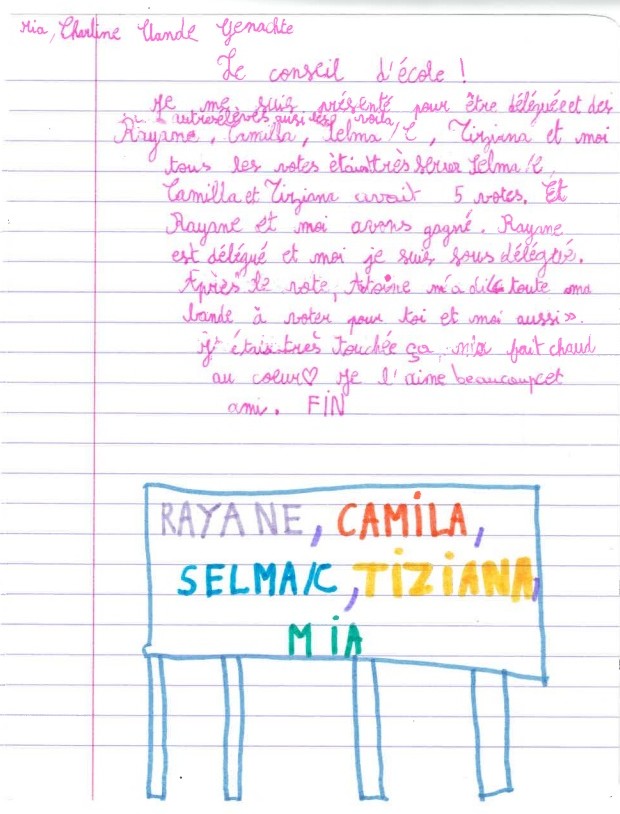 Mia, Charline Vande Genachte
Le conseil d'école !
Je me suis présenté pour être déléguée et des
autres élèves aussi les voila,
Rayane, Camilla, Selma/C, Tiziana et moi
tous les votes étaint très serrer Selma/C,
Camilla et Tiziana avait 5 votes. Et
Rayane et moi avons gagné. Rayane
est délégué et moi je suis sous délégué.
Après le vote, Antoine m'a dit « toute ma
bande à voter pour toi et moi aussi ».
j' étais très touchée ça m'a fait chaud
au coeur♡ Je l'aime beaucoup cet
ami. FIN
RAYANE, CAMiLA,
SELMA/C, TiZiANA,
MiA